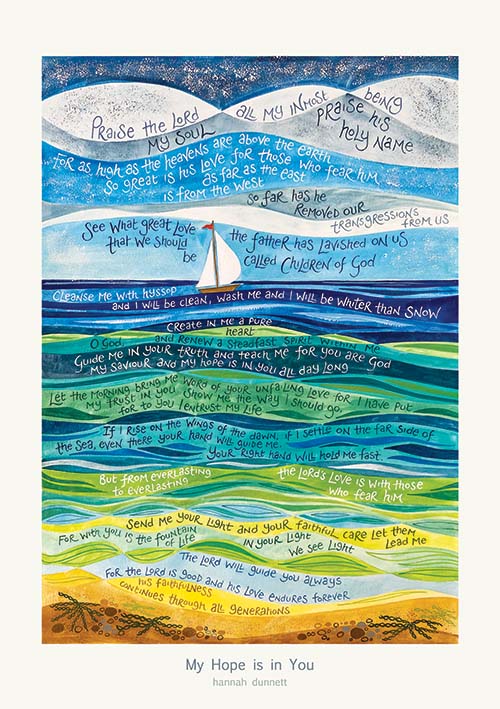 PRAISE the LORD all my inmost being
my soul PRAISE his
holy name
for as high as the heavens are above the earth
so great is his love for those who fear him
as far as the east
is from the west
so far has he
removed our
transgressions
from us
See what great love the father has lavished on us
that we should be called Children of God
Cleanse me with hyssop
and I will be clean, wash me and I will be whiter than snow
Create in me a pure
heart
O God, and renew a steadfast spirit within me
Guide me in your truth and teach me for you are God
my Saviour and my hope is in you all day long
Let the morning bring me word of your unfailing love for I have put
my trust in you show me the way I should go,
for to you I entrust my life
If I rise on the wings of the dawn, if I settle on the far side of
the sea, even there your hand will guide me.
your right hand will hold me fast.
But from everlasting the Lord's love is with those
to everlasting who fear him
Send me your light and your faithful care let them
lead me
For with you is the fountain in your light
of life we see light
The Lord will guide you always
for the Lord is good and his love endures forever
his faithfulness
continues through all generations
My Hope is in You
hannah dunnett